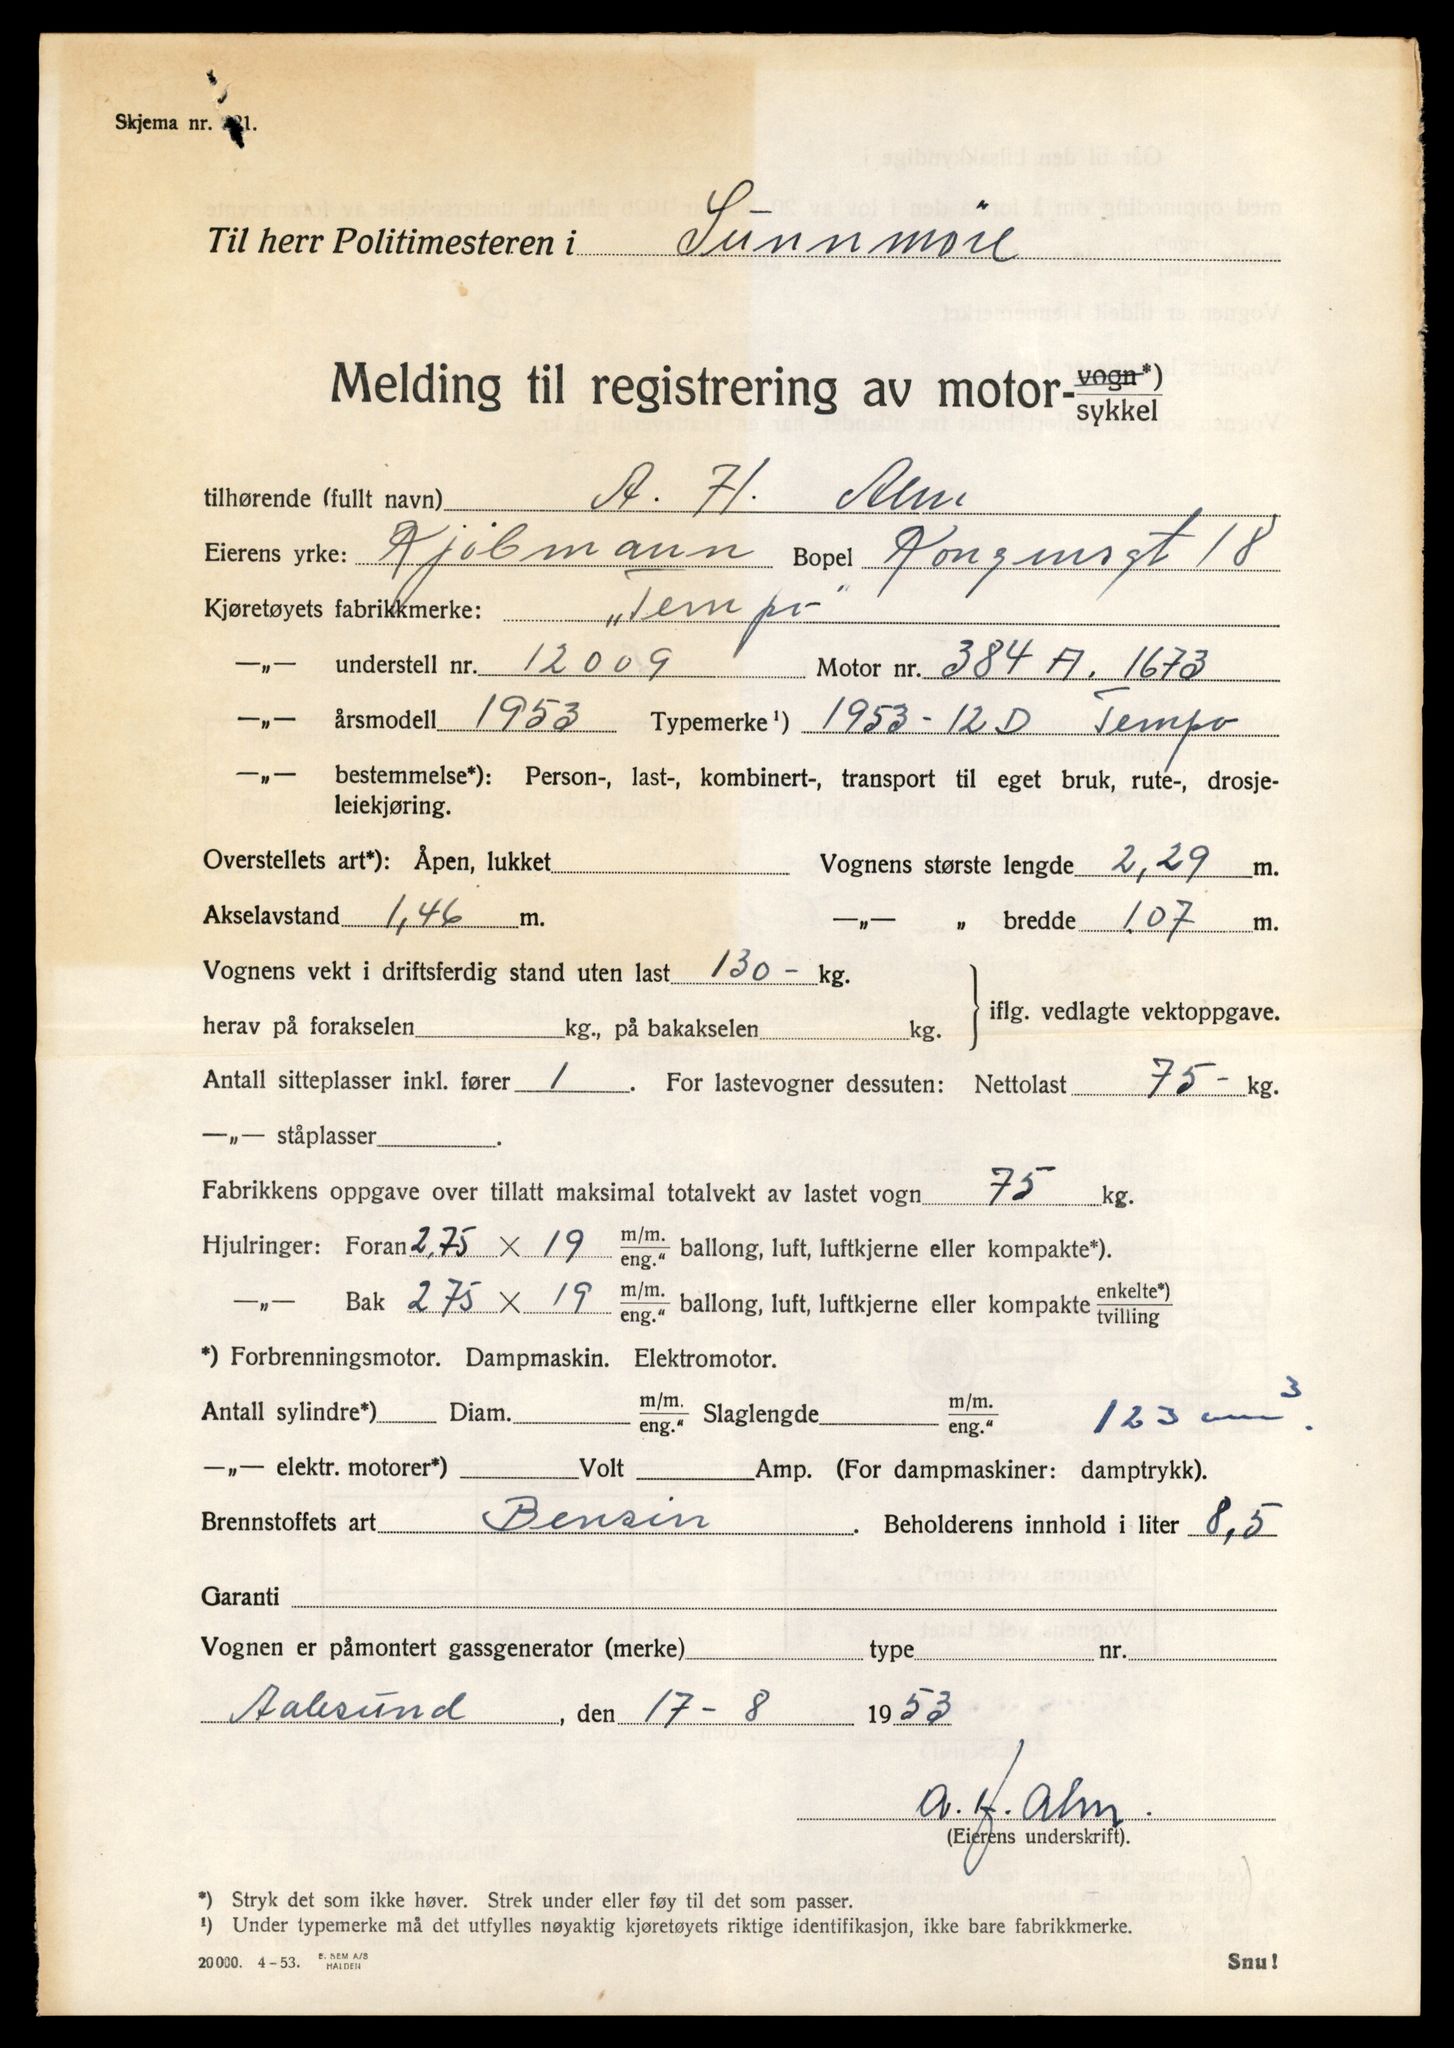 Skjema nr. 21.
Til herr Politimesteren i Sünnmöre
Melding til registrering av motor-vogn*)
sykkel
tilhørende (fullt navn) A. H. Alm
Eierens yrke: Kjöbmann Bopel Kongensgt 18
Kjøretøyets fabrikkmerke: „Tempo"
—„— understell nr. 12009 Motor nr. 384 A. 1673
—„— årsmodell 1953 Typemerke¹) 1953 - 12 D Tempo
—„— bestemmelse*): Person-, last-, kombinert-, transport til eget bruk, rute-, drosje-
leiekjøring.
Overstellets art*): Åpen, lukket Vognens største lengde 2,29 m.
Akselavstand 1,46 m. —„— „ bredde 1.07 m.
Vognens vekt i driftsferdig stand uten last 130 - kg.
herav på forakselen kg., på bakakselen kg. iflg. vedlagte vektoppgave.
Antall sitteplasser inkl. fører 1. For lastevogner dessuten: Nettolast 75 - kg.
—„— ståplasser .
Fabrikkens oppgave over tillatt maksimal totalvekt av lastet vogn 75 kg.
Hjulringer: Foran 2,75 × 19 m/m. eng.“ ballong, luft, luftkjerne eller kompakte*).
—„— Bak 2.75 × 19 m/m. eng.“ ballong, luft, luftkjerne eller kompakte enkelte*) tvilling
*) Forbrenningsmotor. Dampmaskin. Elektromotor.
Antall sylindre*) Diam. m/m. eng.“ Slaglengde m/m. eng.“ 123 cm³.
—„— elektr. motorer*) Volt Amp. (For dampmaskiner: damptrykk).
Brennstoffets art Bensin. Beholderens innhold i liter 8,5
Garanti
Vognen er påmontert gassgenerator (merke) type nr.
Aalesünd, den 17 - 8 1953
A. H. Alm.
(Eierens underskrift).
*) Stryk det som ikke høver. Strek under eller føy til det som passer.
¹) Under typemerke må det utfylles nøyaktig kjøretøyets riktige identifikasjon, ikke bare fabrikkmerke.
20 000. 4 – 53. E. SEM A/S HALDEN Snu!